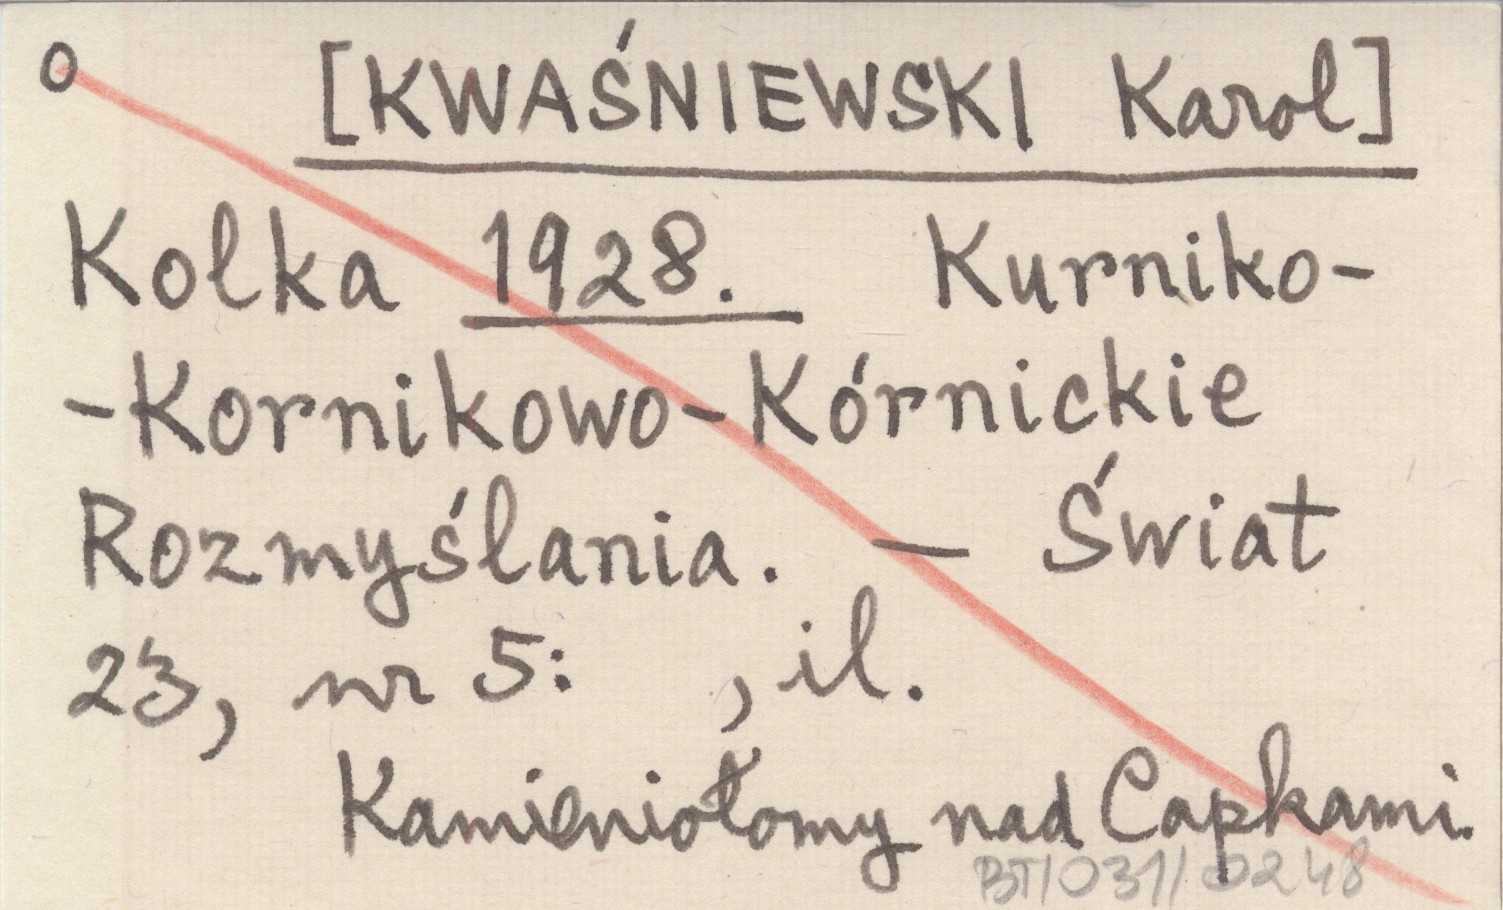 o [KWAŚNIEWSKI Karol]
Kolka 1928. Kurniko-
-Kornikowo-Kórnickie
Rozmyślania. — Świat
23, nr 5: , il.
Kamieniołomy nad Capkami.
BT/031/0248